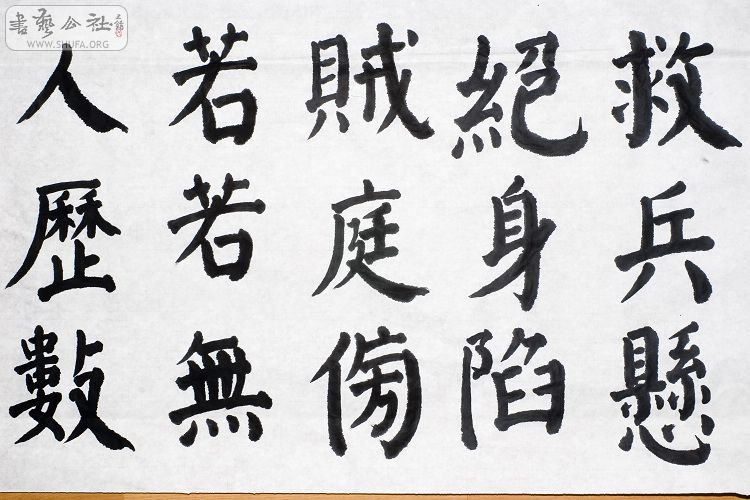 救兵懸
絕身陷
賊庭傍
若若無
人歷數
書藝公社
WWW.SHUFA.ORG